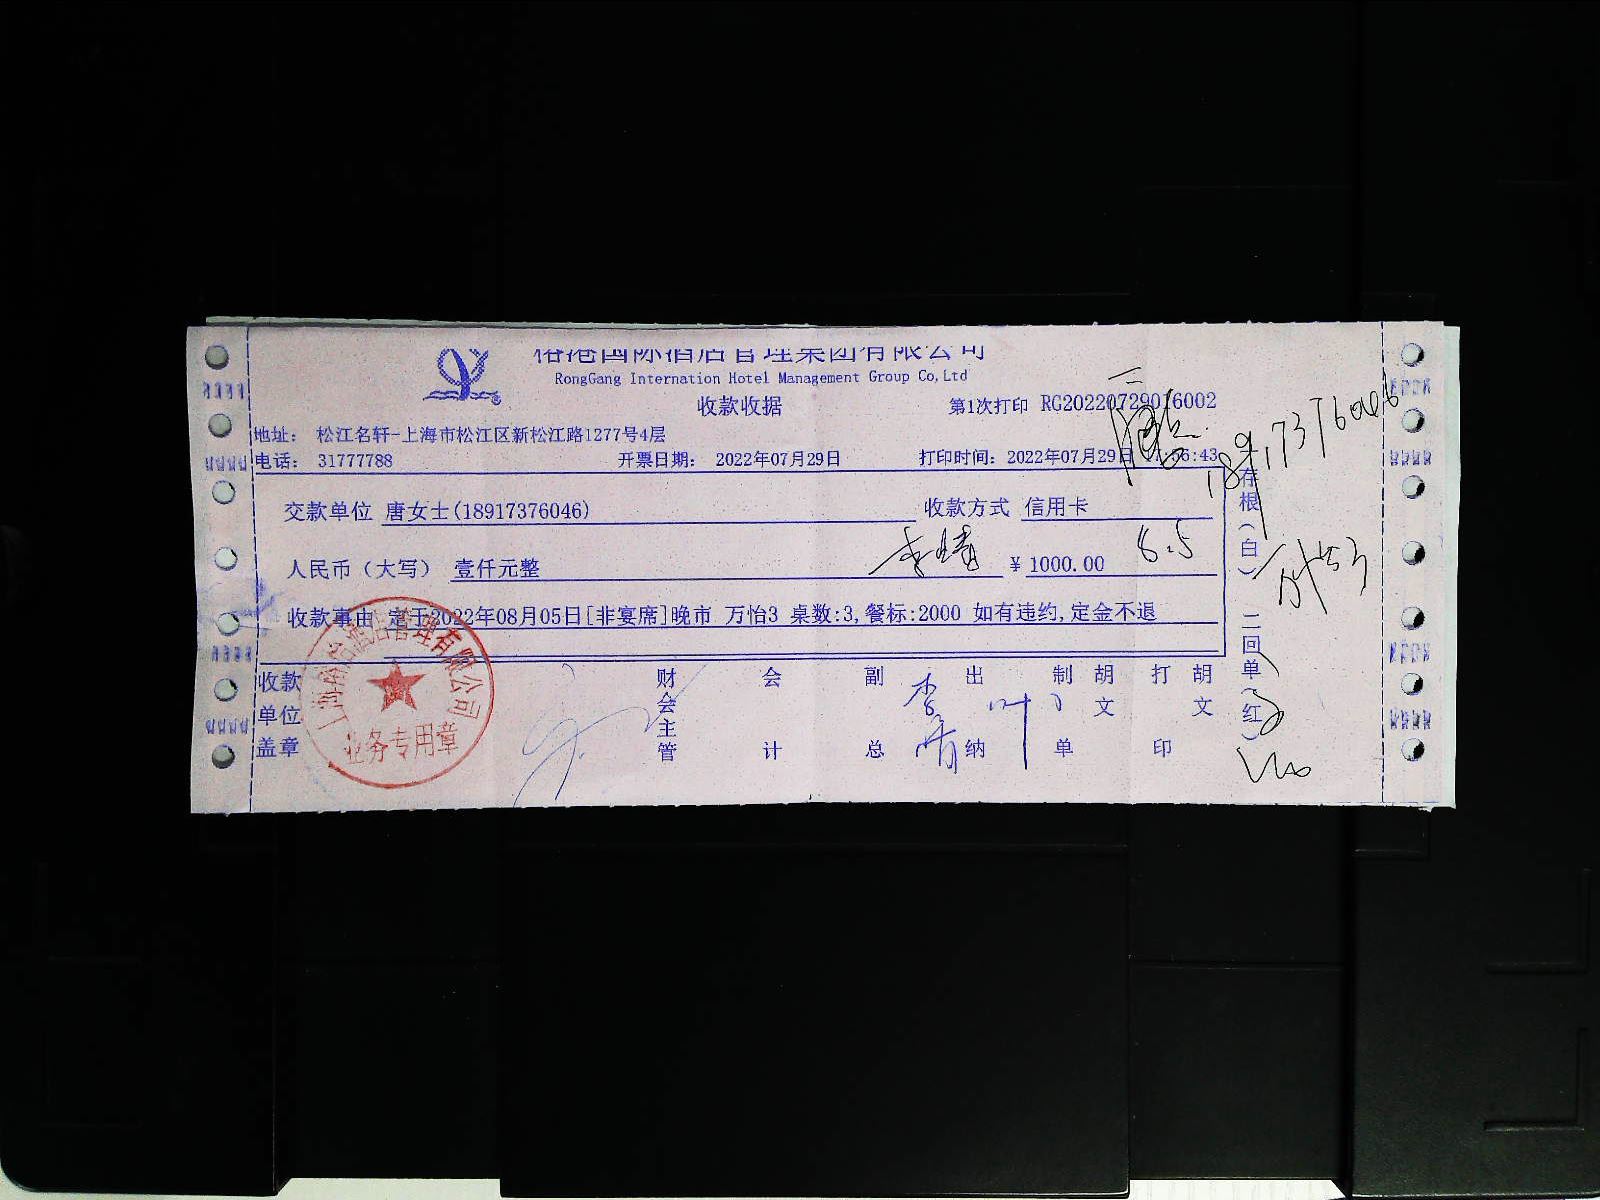 国际酒店管理集团有限公司
RongGang Internation Hotel Management Group Co,Ltd
收款收据
第1次打印 RG20220729016002
地址： 松江名轩-上海市松江区新松江路1277号4层
电话： 31777788 开票日期： 2022年07月29日 打印时间：2022年07月29日 :56:43
18917376046
交款单位 唐女士(18917376046) 收款方式 信用卡
人民币（大写） 壹仟元整 李晴 ￥1000.00 8.5
收款事由 定于2022年08月05日[非宴席]晚市 万怡3 桌数:3,餐标:2000 如有违约,定金不退
收款单位盖章 财会主管 会计 副总 李晴 出纳 叶 制单 胡文 打印 胡文
存根（白） 二回单（红）
业务专用章